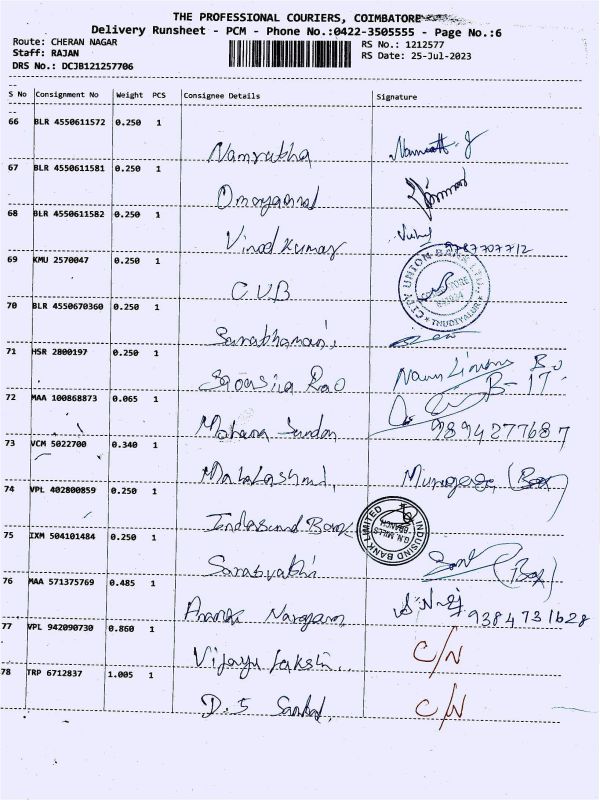 THE PROFESSIONAL COURIERS, COIMBATORE
Delivery Runsheet - PCM - Phone No.:0422-3505555 - Page No.:6
Route: CHERAN NAGAR
RS No.: 1212577
Staff: RAJAN
RS Date: 25-Jul-2023
DRS No.: DCJB121257706
S No Consignment No Weight PCS Consignee Details Signature
66 BLR 4550611572 0.250 1
Namrutha
67 BLR 4550611581 0.250 1
68 BLR 4550611582 0.250 1
Vinod Kumar
9787707712
69 KMU 2570047 0.250 1
C.U.B
CITY UNION BANK LTD.
THUDIYALUR
70 BLR 4550670360 0.250 1
71 HSR 2800197 0.250 1
Rao
B-17
72 MAA 100868873 0.065 1
Mohana Sundar
9894277687
73 VCM 5022700 0.340 1
Mahalakshmi, (Box)
74 VPL 402800859 0.250 1
Indusind Bank
INDUSIND BANK LIMITED
G.N. MILLS
BRANCH
75 IXM 504101484 0.250 1
(Box)
76 MAA 571375769 0.485 1
Narayan
9384731628
77 VPL 942090730 0.860 1
C/N
78 TRP 6712837 1.005 1
D.S
C/N